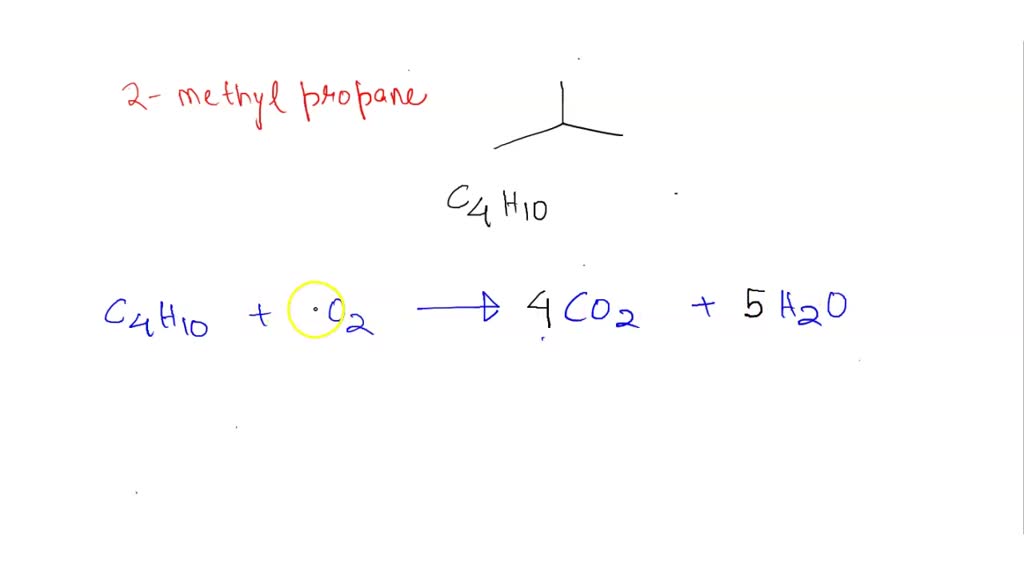 2- methyl propane
C4H10
C4H10 + O2 → 4 CO2 + 5 H2O